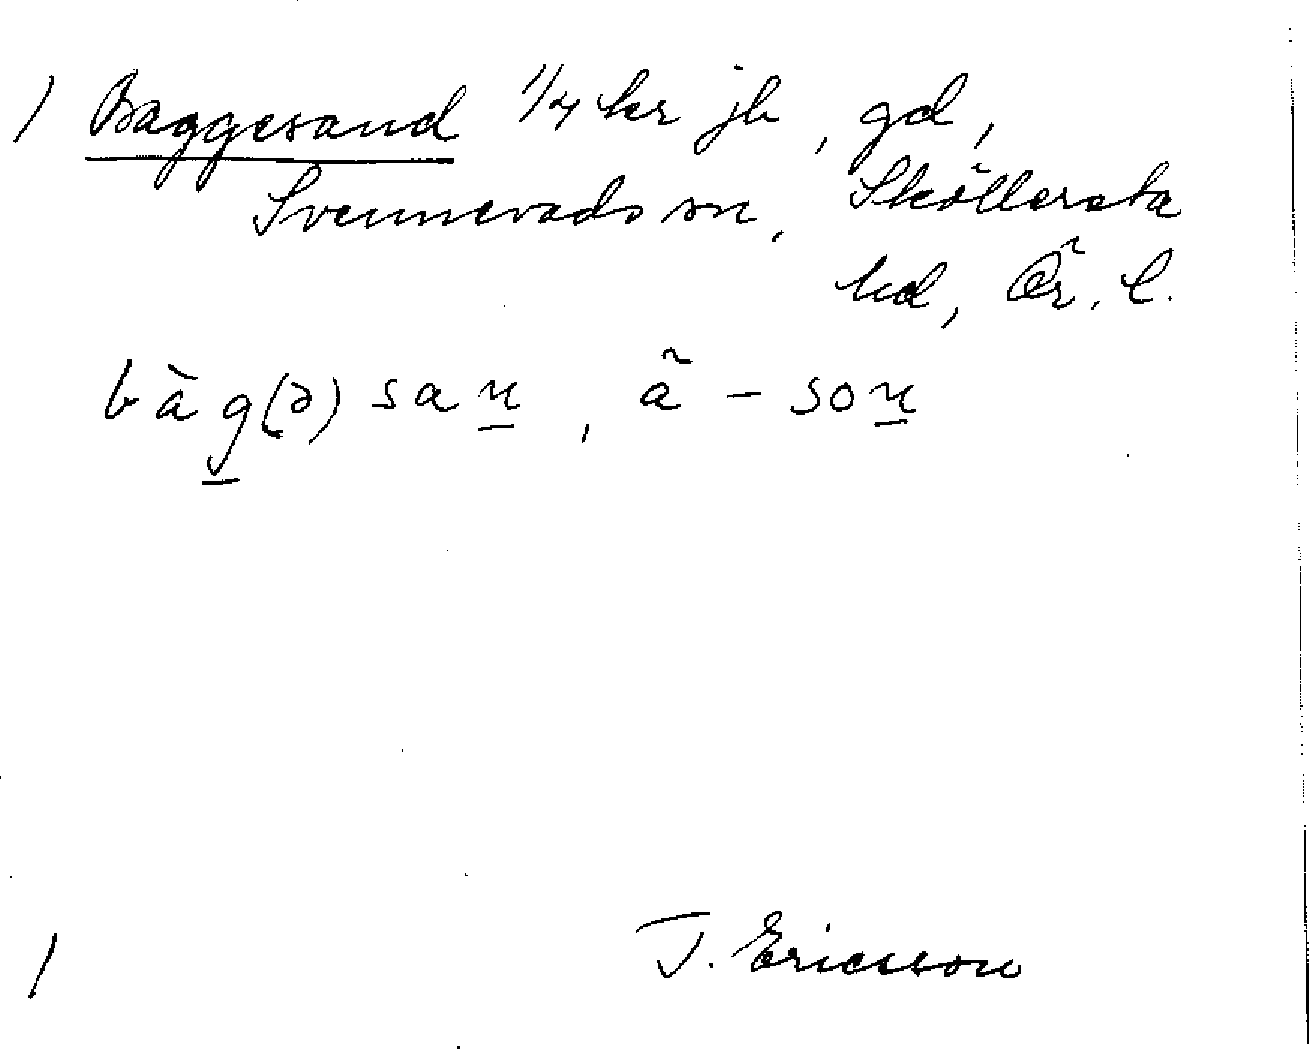 ) Baggesand 1/4 kr jb, gd,
Svennevads sn, Sköllersta
hd, Ör. l.
bàg(ə)san, ã - son
) T. Ericsson